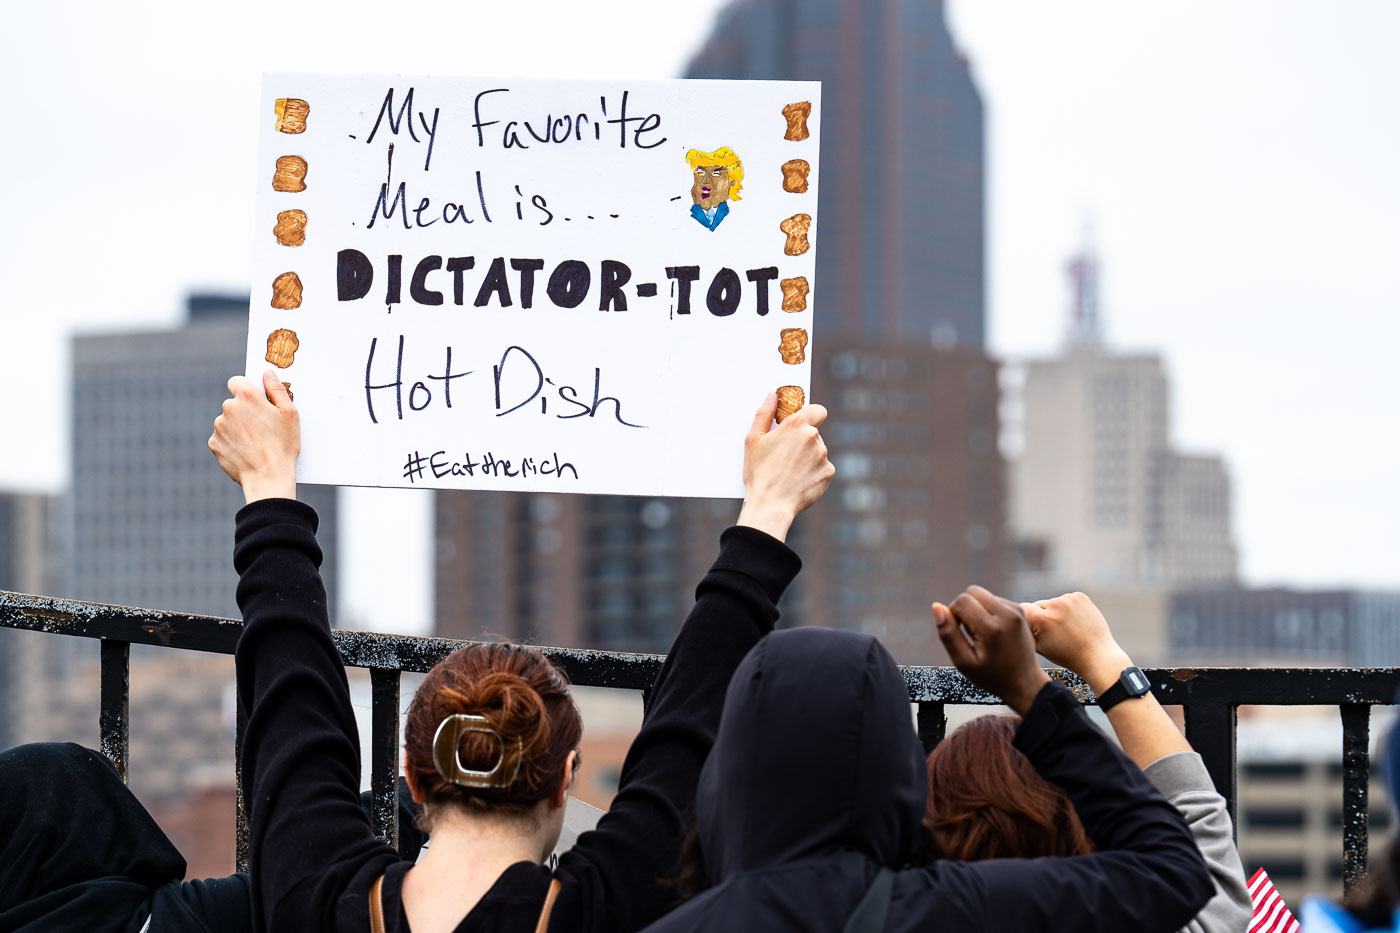 My Favorite
Meal is...
DICTATOR-TOT
Hot Dish
#Eattherich